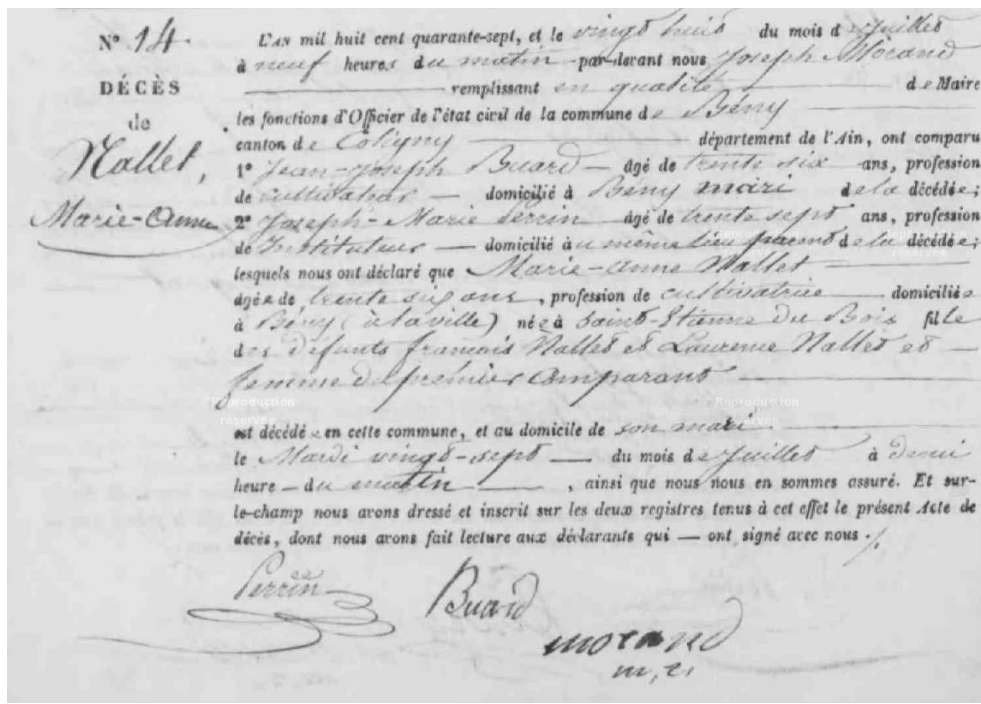 N° 14.
DÉCÈS
de
Nallet,
Marie-Anne
L'AN mil huit cent quarante-sept, et le vingt huit du mois de Juillet
à neuf heures du matin par-devant nous Joseph Morand
remplissant en qualité de Maire
les fonctions d'Officier de l'état civil de la commune de Bény
canton de Coligny département de l'Ain, ont comparu
1° Jean-Joseph Buard âgé de trente six ans, profession
de cultivateur domicilié à Bény mari de la décédée;
2° Joseph-Marie Perrin âgé de trente sept ans, profession
de Instituteur domicilié au même lieu parent de la décédée;
lesquels nous ont déclaré que Marie-Anne Nallet
âgée de trente six ans, profession de cultivatrice domiciliée
à Bény (à la ville) née à Saint-Etienne du Bois fille
des défunts françois Nallet et Laurence Nallet et
femme du premier comparant
est décédée en cette commune, et au domicile de son mari
le Mardi vingt-sept du mois de Juillet à demi
heure du matin, ainsi que nous nous en sommes assuré. Et sur-
le-champ nous avons dressé et inscrit sur les deux registres tenus à cet effet le présent Acte de
décès, dont nous avons fait lecture aux déclarants qui — ont signé avec nous ./.
Perrin
Buard
morand
Reproduction
réservée
Reproduction
réservée